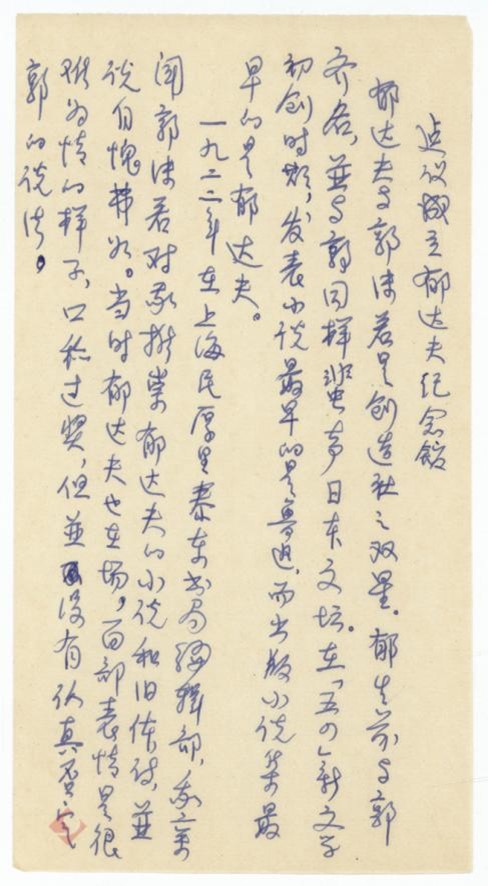 建议成立郁达夫纪念馆
郁达夫与郭沫若是创造社之双星。郁生前与郭
齐名，並与郭同样蜚声日本文坛。在「五四」新文学
初创时期，发表小说最早的是鲁迅，而出版小说集最
早的是郁达夫。
一九二二年在上海民厚里泰东书局编辑部，我亲
闻郭沫若对我推崇郁达夫的小说和旧体诗，並
说自愧弗如。当时郁达夫也在场，面部表情是很
难为情的样子，口称过奖，但並没有认真否定
郭的说法。